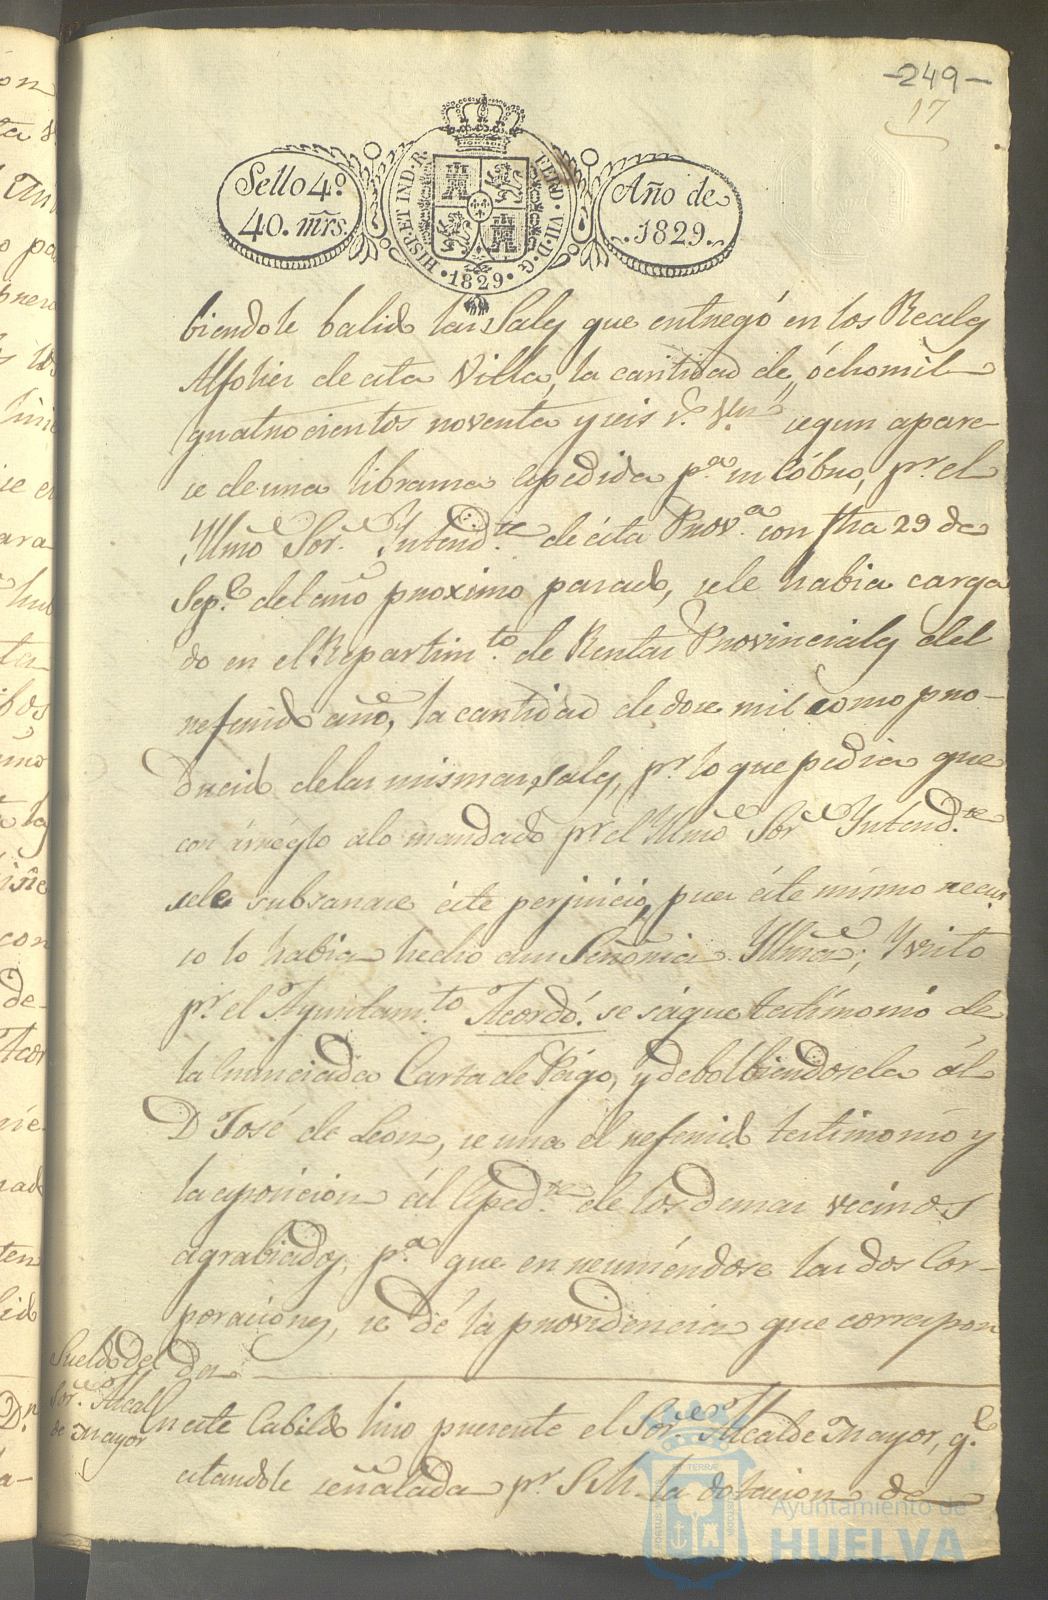 -249-
17
Sello 4º
40. mrs.
HISP. ET IND. R.
FERD. VII. D. G.
1829
Año de
1829.
biendole balido las Sales que entregó en los Reales
Alfolies de esta Villa, la cantidad de, óchomil
quatrocientos noventa y seis r.s V.n segun apare-
se de una librama espedida p.a su cóbro, p.r el
Yllmo Sor. Yntend.te de ésta Prov.a con fha 29 de
Sep.e del año proximo pasado, se le habia carga
do en el Repartim.to de Rentas Provinciales del
referido año, la cantidad de dose mil como pro-
ducido delas mismas sales, p.r lo que pedia que
con árreglo alo mandado p.r el Yllmo Sor Yntend.te
sele subsanase éste perjuicio, pues éste mismo recur
so lo habia hecho a su Señoria Yllma; Y visto
p.r el Ayuntam.to Acordó: se sáque testimonio de
la enunciada Carta de Págo, y debolbiendosela ál
D José de Leon, se una el referido testimonio y
la esposicion ál Esped.te de los demas vecinos
agrabiados, p.a que en reuniéndose las dos Cor-
poraciones, se dé la providencia que correspon
da
Sueldo del
Sor. Alcal
de Mayor
En este Cabildo hizo presente el Sor. Alcalde Mayor, q.e
estandole señalada p.r S.M. la dotacion de
Ayuntamiento de
HUELVA